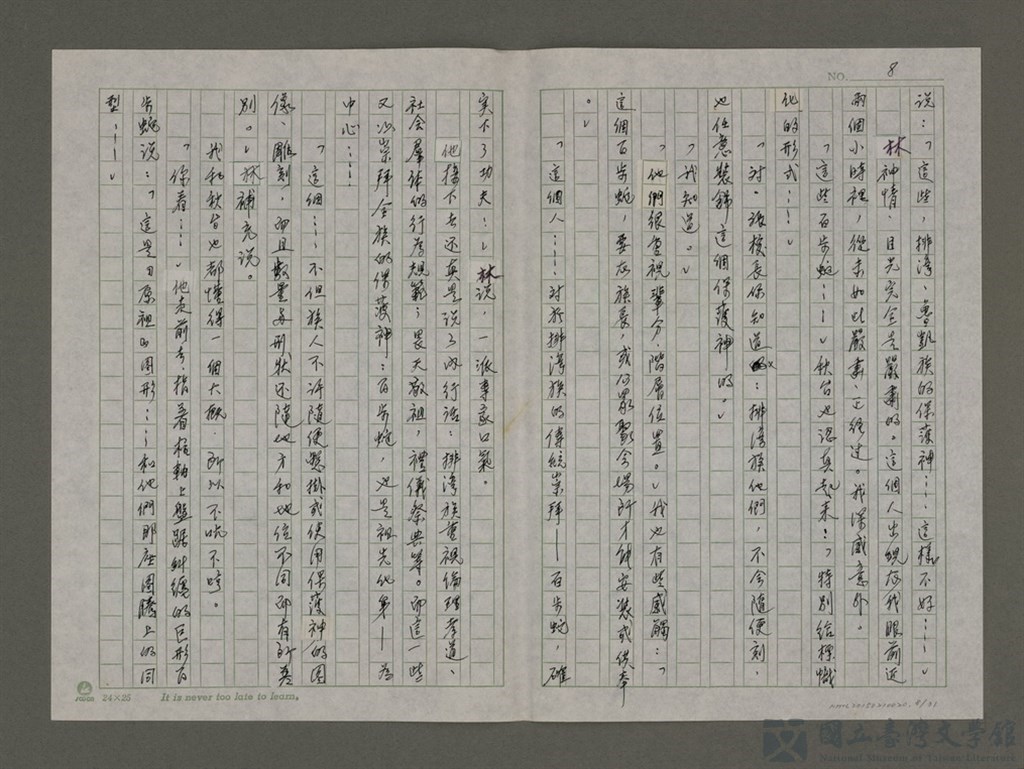 NO. 8
說：「這些，排灣、魯凱族的保護神……這樣不好……」
林神情、目光完全是嚴肅的。這個人出現在我眼前近
兩個小時裡，從未如此嚴肅、正經過。我深感意外。
「這些百步蛇……」秋台也認真起來：「特別給標幟
化的形式……」
「對。議長你知道：排灣族他們，不會隨便刻，
也任意裝飾這個保護神的。」
「我知道。」
「他們很重視輩分、階層位置。」我也有些感觸：「
這個百步蛇，要在族長，或公眾聚會場所才能安裝或供奉
。」
「這個人……對於排灣族的傳統崇拜——百步蛇，確
實下了功夫！」林說，一派專家口氣。
他接下去還真是說了內行話：排灣族重視倫理孝道、
社会羣体的行為規範；畏天敬祖，禮儀祭典等。而這一些
又以崇拜全族的保護神：百步蛇，也是祖先化身——為
中心……
「這個……不但族人不許隨便懸掛或使用保護神的圖
像、雕刻，而且數量与形狀还隨地方和地位不同而有所差
別。」林補充說。
我和秋台也都懂得一個大概，所以不吭不哼。
「你看……」他走前去，指着 軸上盤踞糾繞的巨形百
步蛇說：「這是日原祖的圖形……和他們那座圖騰上的同
型……」
24×25
It is never too late to learn.
國立臺灣文學館
National Museum of Taiwan Literature